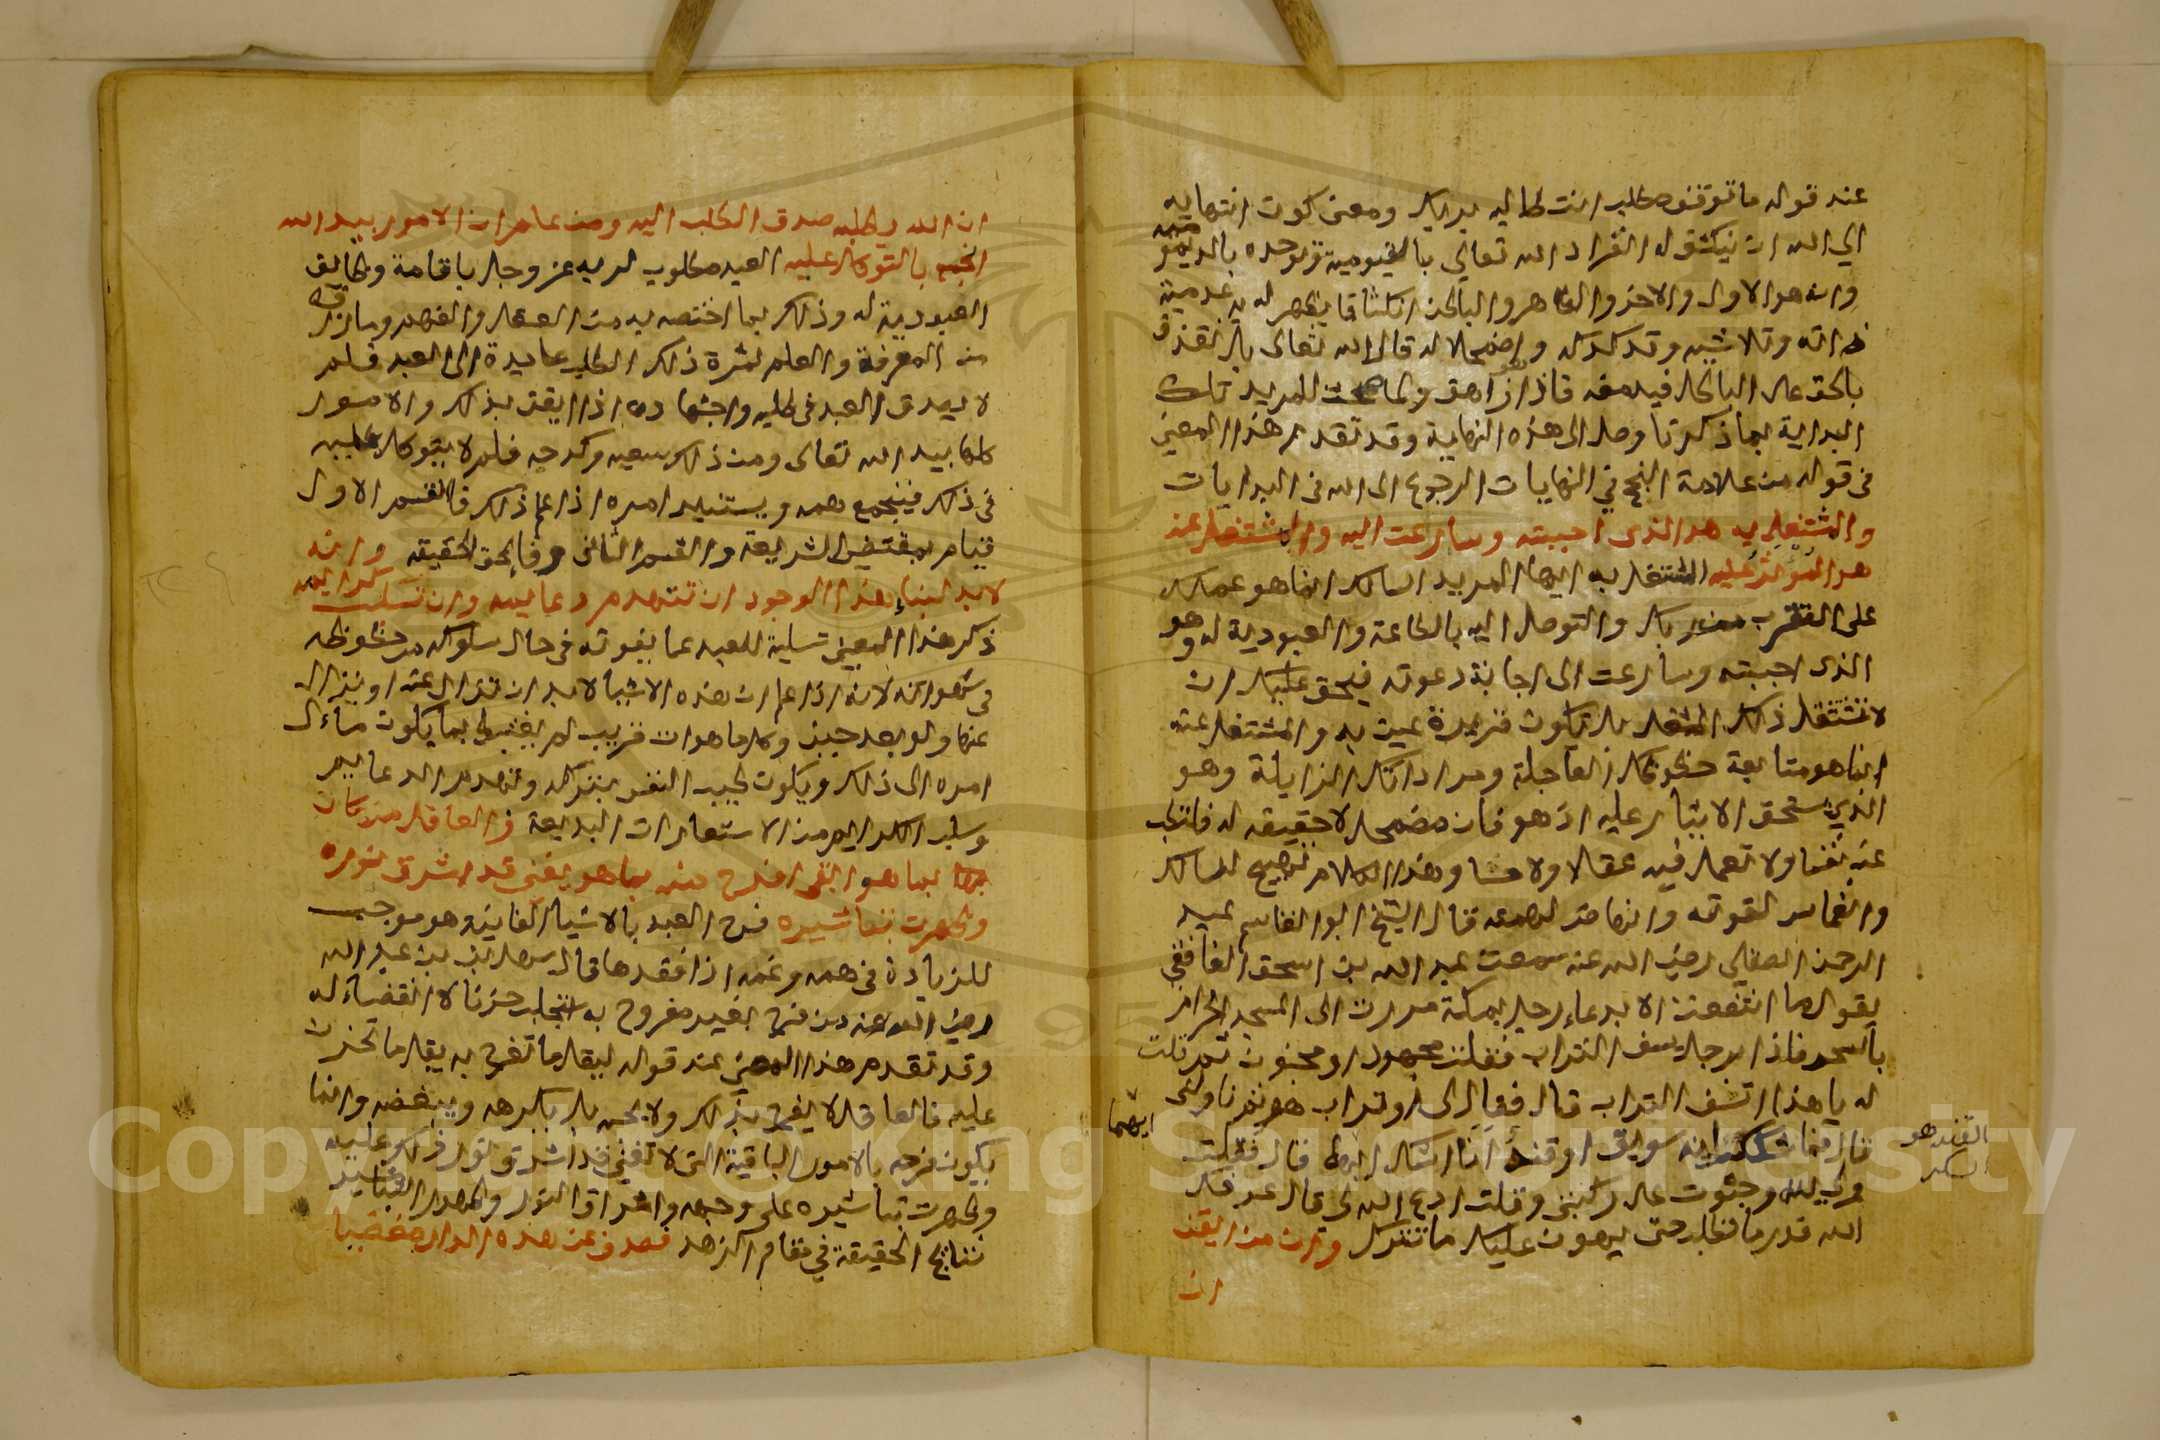 عند قوله ما توقف مطلب انت طالبه بربك ومعنى كون انتهايه
الى الله ان ينكشف له انفراد الله تعالى بالقيومية وتوحده بالديمومية
وانه هو الاول والاخر والظاهر والباطن انكشافا يظهر له به عدمية
ذاته وتلاشيه وتدكدكه واضمحلاله قال الله تعالى بل نقذف
بالحق على الباطل فيدمغه فاذا هو زاهق ولما صحت للمريد تلك
البداية بما ذكرنا وصل الى هذه النهاية وقد تقدم هذا المعنى
فى قوله من علامة النجح في النهايات الرجوع الى الله فى البدايات
والمشتغل به هو الذى احببته وسارعت اليه والمشتغل عنه
هو المؤثر عليه المشتغل به ايها المريد السالك انما هو عملك
على التقرب من ربك والتوصل اليه بالطاعة والعبودية له وهو
الذى احببته وسارعت الى اجابة دعوته فيحق عليك ان
لا تستثقل ذلك الشغل بل تكون قريرة عين به والمشتغل عنه
انما هو متابعة حظوظك العاجلة ومراداتك الزايلة وهو
الذي يستحق الايثار عليه اذ هو فان مضمحل لا حقيقة له فلتطب
عنه نفسا ولا تعمل فيه عقلا ولا حسا وهذا الكلام تهييج للسالك
وانعاش لقوته وانهاض لهمته قال الشيخ ابو القاسم عبد
الرحمن الصقلي رضي الله عنه سمعت عبد الله بن اسحق الغافقي
يقول ما انتفعت الا بدعاء رجل بمكة مررت الى المسجد الحرام
بالسحر فاذا برجل يسف التراب فقلت مجهود او مجنون ثم قلت
له يا هذا اتسف التراب قال فقال لى او تراب هو ثم ناولنى
قال فما شككت انه سويق او قند انا اشك ايهما قال فقبلت
وجثوت على ركبتى وقلت ادع الله لى قال عرفك
الله قدر ما تطلب حتى يهون عليك ما تترك وان من ايقن
ان
القند هو
السكر
ايهما
ان الله يطلبه صدق الطلب اليه ومن علم ان الامور بيد الله
انجمع بالتوكل عليه العبد مطلوب لربه عز وجل باقامة وظايف
العبودية له وذلك بما اختصه به من العقل والفهم وما رزقه
من المعرفة والعلم ثمرة ذلك الطلب عايدة الى العبد فلم
لا يصدق العبد فى طلبه واجتهاده اذا ايقن بذلك والامور
كلها بيد الله تعالى ومن ذلك سعيه وكدحه فلم لا يتوكل عليه
فى ذلك فينجمع همه ويستنير امره اذا علم ذلك فالقسم الاول
قيام بمقتضى الشريعة والقسم الثانى وفا بحق الحقيقة وانه
لابد لبناء هذا الوجود ان تنهدم دعايمه وان تسلب كرايمه
ذكر هذا المعنى تسلية للعبد عما يفوته فى حال سلوكه من حظوظه
فى شهواته لانه اذا علم ان هذه الاشيا لابد ان تزال عنه او يزال
عنها ولو بعد حين وكل ما هو ات قريب لم يغتبط بما يكون مآل
امره الى ذلك ويكون طيب النفس بتركه وتهدم الدعايم
وسلب الكرايم من الاستعارات البديعة فالعاقل من كان
بما هو ابقى افرح منه بما هو يفنى قد اشرق نوره
وظهرت تباشيره فرح العبد بالاشيا الفانية هو موجب
للزيادة فى همه وغمه اذا فقدها قال سهل بن عبد الله
رضي الله عنه من فرح بغير مفروح به استجلب حزنا لا انقضاء له
وقد تقدم هذا المعنى عند قوله ليقل ما تفرح به يقل ما تحزن
عليه فالعاقل لا يفرح بذلك ولا يحبه بل يكرهه ويبغضه وانما
يكون فرحه بالامور الباقية التى لا تفنى قد اشرق نور ذلك عليه
وظهرت تباشيره على وجهه واشراق النور وظهور التباشير
نتايج الحقيقة في مقام الزهد فصدف عن هذه الدار مغضيا